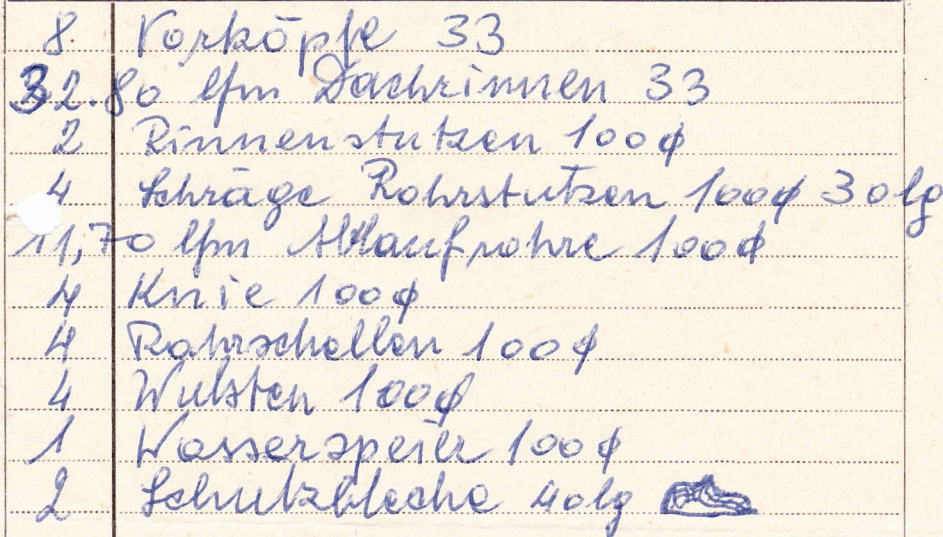 8 Vorköpfe 33
32.80 lfm Dachrinnen 33
2 Rinnenstutzen 100ϕ
4 Schräge Rohrstutzen 100ϕ 30lg
11,70 lfm Ablaufrohre 100ϕ
4 Knie 100ϕ
4 Rohrschellen 100ϕ
4 Wulsten 100ϕ
1 Wasserspeier 100ϕ
2 Schutzbleche 40lg